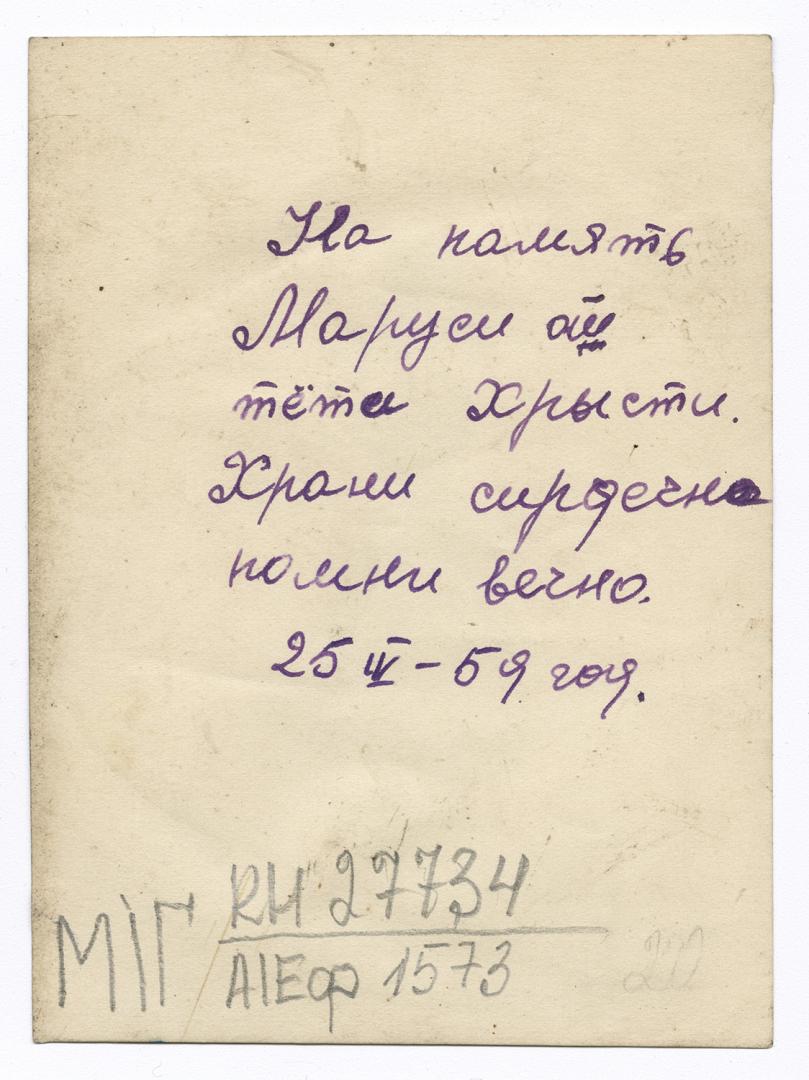 На память
Маруси от
тёти Хрысти.
Храни сирдечно
помни вечно.
25 IV - 59 год.
МІГ КН 27734
АІЕф 1573